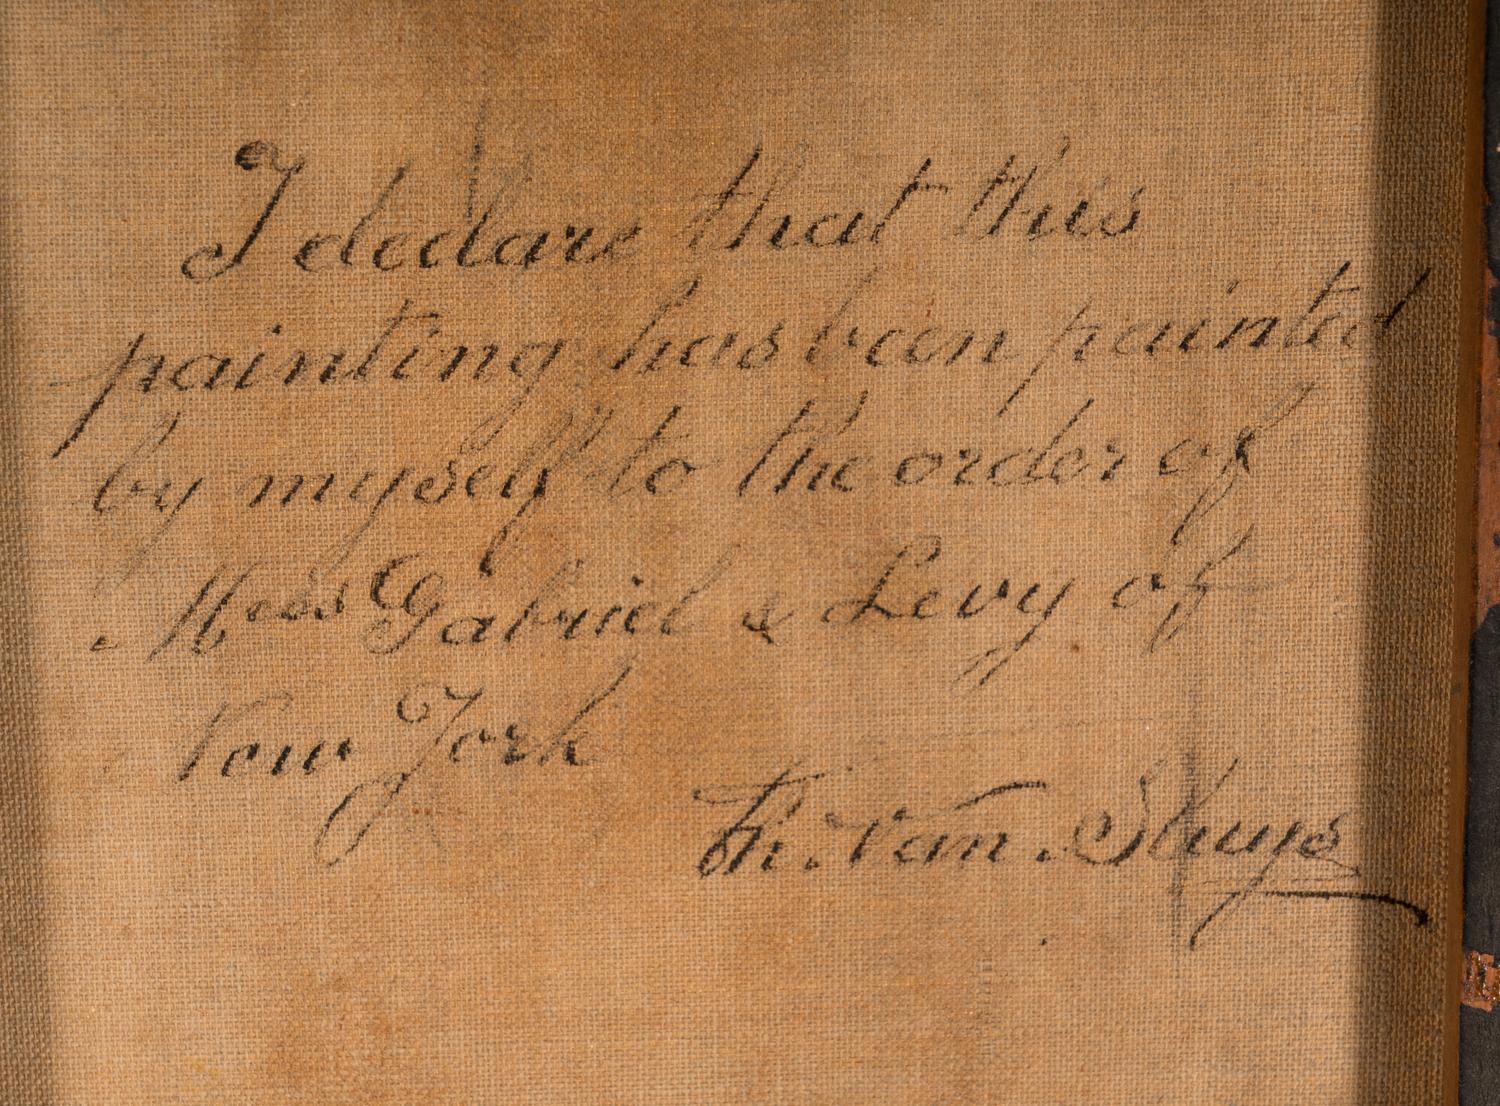 I declare that this
painting has been painted
by myself to the order of
Mess Gabriel & Levy of
New York
Th. Van Sluys